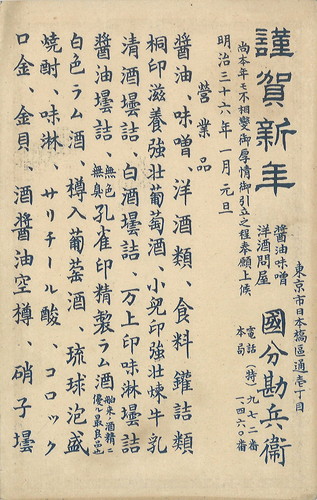 謹賀新年
尚本年モ不相變御厚情御引立之程奉願上候
明治三十六年一月元旦
東京市日本橋區通壱丁目
醬油味噌
洋酒問屋
國分勘兵衞
電話(特)九七二番
本局一、四六〇番
營業品
醬油、味噌、洋酒類、食料鑵詰類
桐印滋養強壮葡萄酒、小兒印強壮煉牛乳
清酒壜詰、白酒壜詰、万上印味淋壜詰
醬油壜詰 無色無臭孔雀印精製ラム酒 舶来ノ酒精ニ優ル最良品也
白色ラム酒、樽入葡萄酒、琉球泡盛
焼酎、味淋、サリチール酸、コロック
口金、金貝、酒醬油空樽、硝子壜